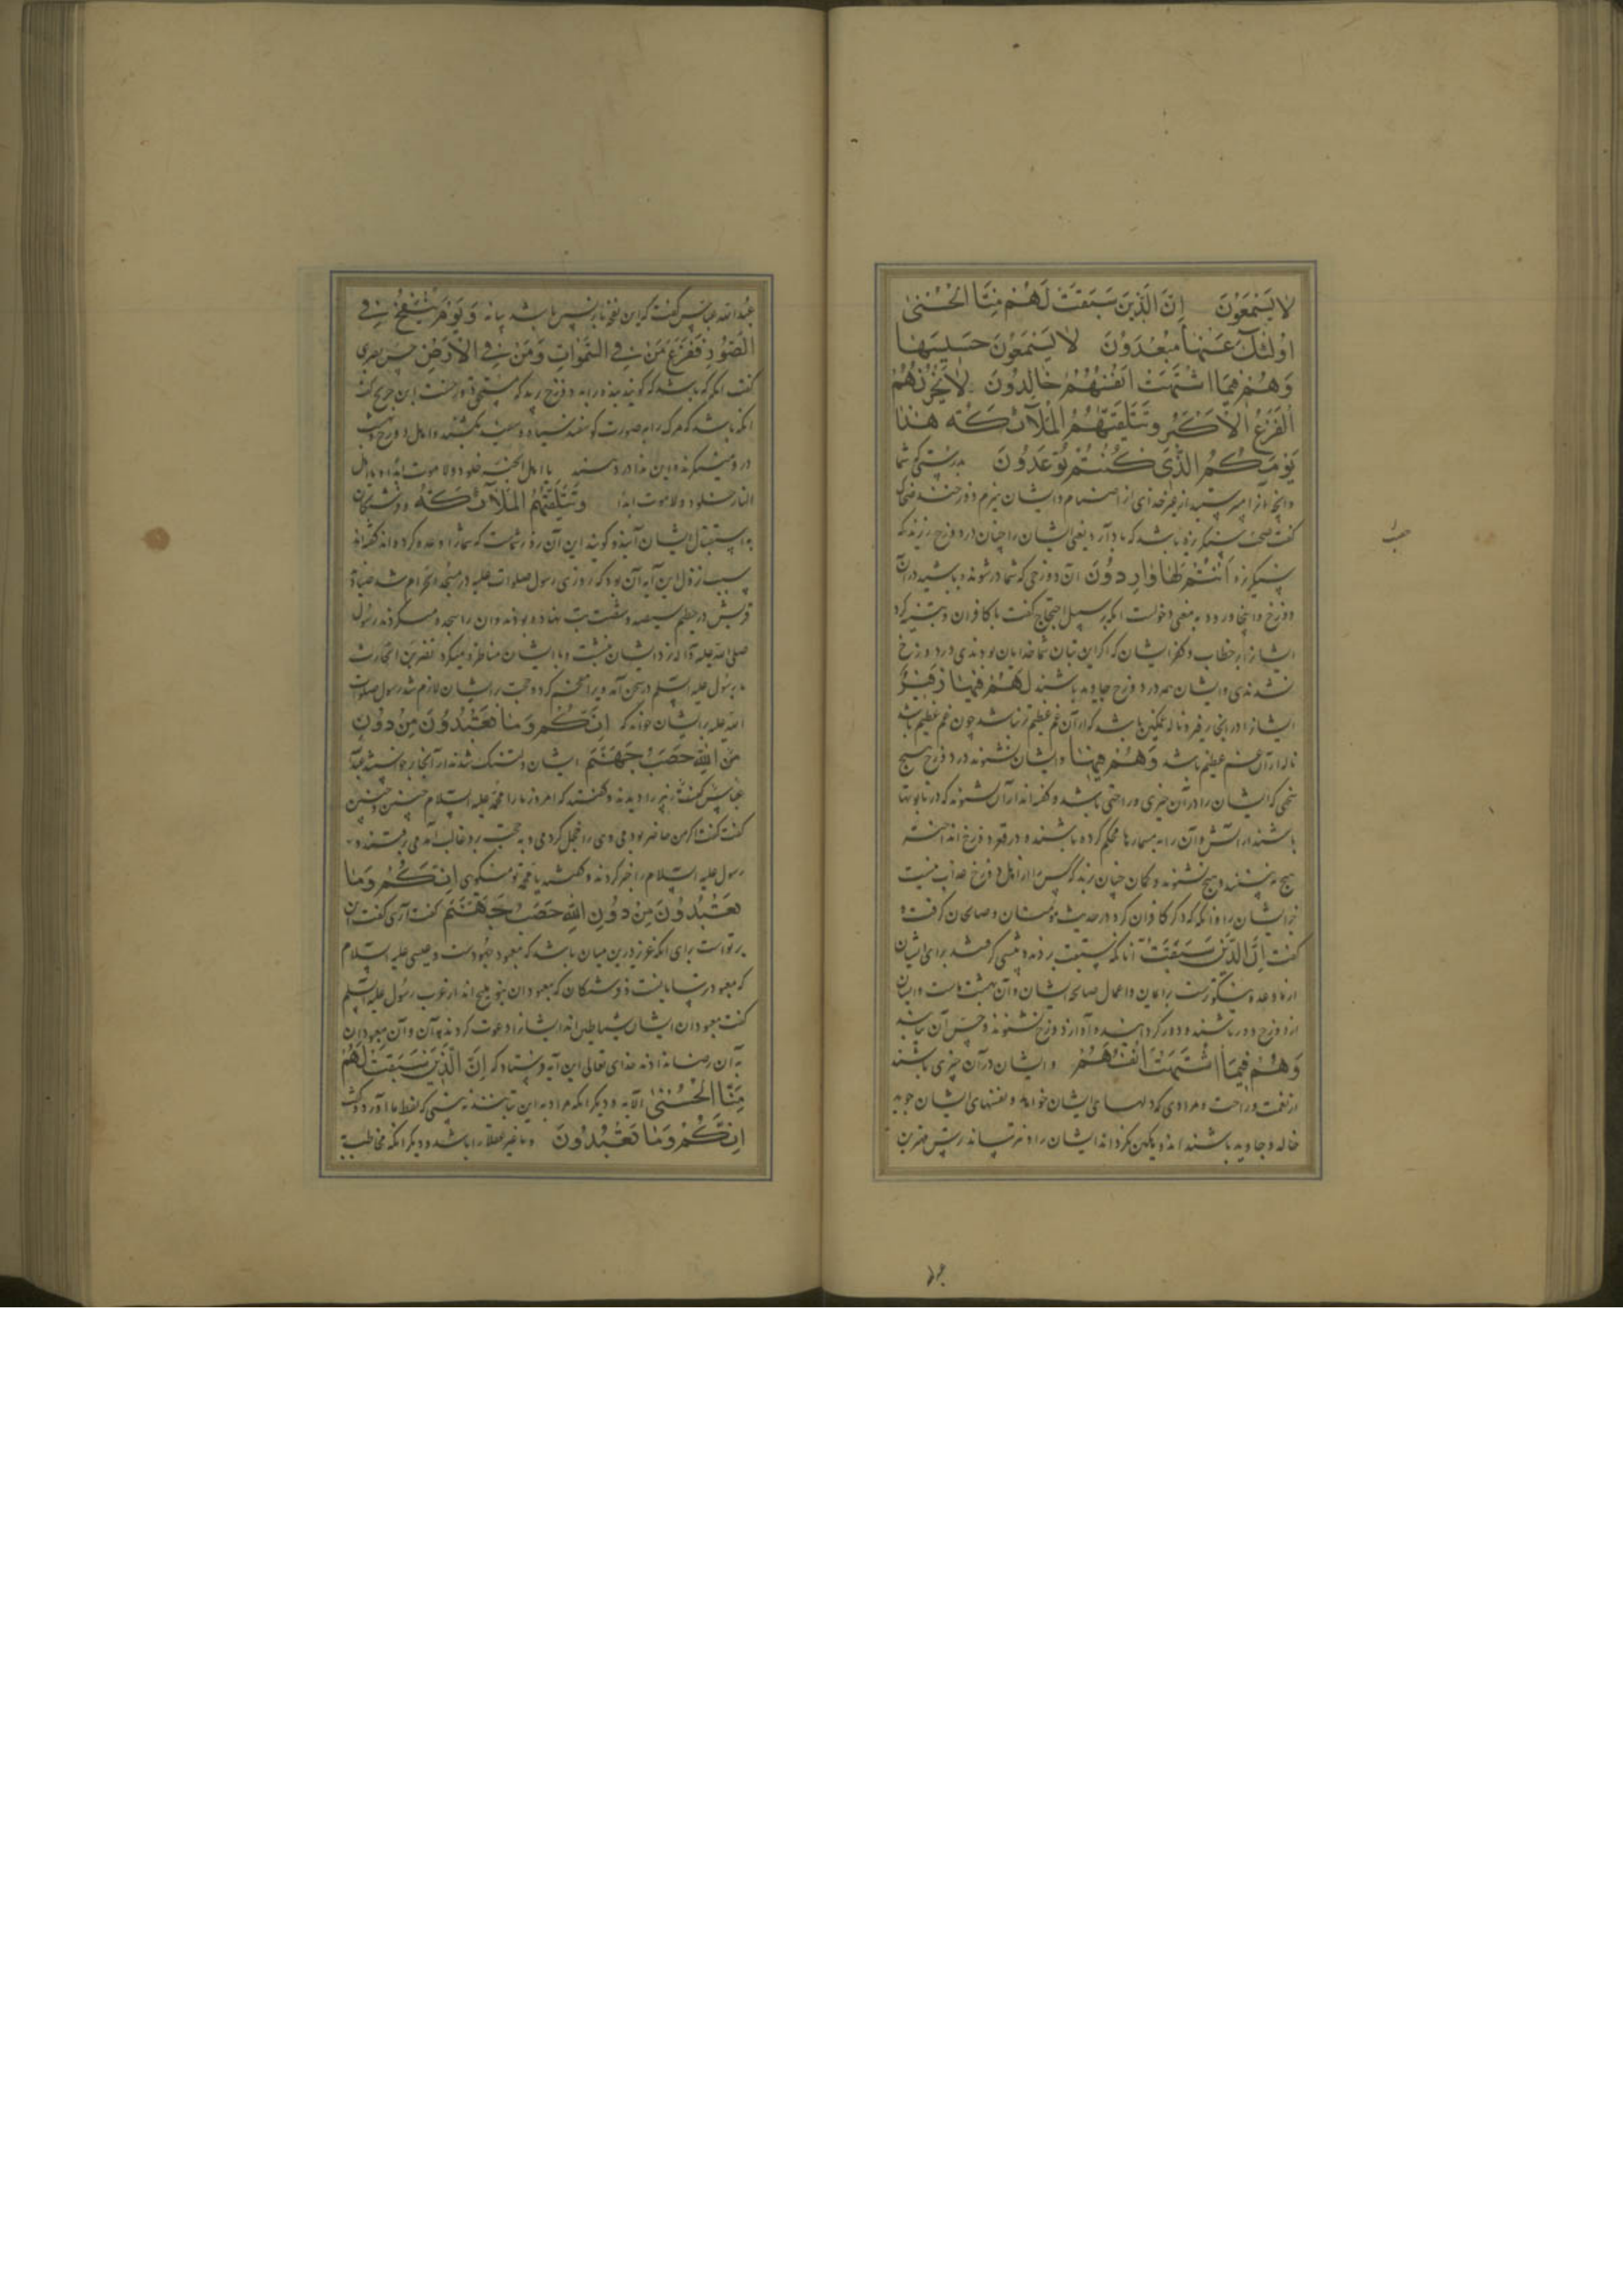 لا يَسْمَعُونَ اِنَّ الَّذِينَ سَبَقَتْ لَهُمْ مِنَّا الْحُسْنىٰ
اُولٰئِكَ عَنْهٰا مُبْعَدُونَ لا يَسْمَعُونَ حَسيسَهٰا
وَهُمْ فِيمَا اشْتَهَتْ اَنْفُسُهُمْ خٰالِدُونَ لا يَحْزُنُهُمُ
الْفَزَعُ الْاَكْبَرُ وَتَتَلَقّٰيهُمُ الْمَلآئِكَةُ هٰذٰا
يَوْمُكُمُ الَّذِى كُنْتُمْ تُوعَدُونَ بدرستی که شما
وانچه از امیر پرستید از غیر خدای از اصنام و ایشان هیزم دوزخند ضحاک
گفت حصب سنگ ریزه باشد که باد آرد یعنی ایشان را چنان در دوزخ ریزند که
سنگریزه اَنْتُمْ لَهٰا وٰارِدُونَ آن دوزخی که شما درشوند و باشید در آن
دوزخ و اینجا ورود به معنی دخولست انکه بر سبیل احتجاج گفت با کافران و تنبیه کرد
ایشان را بر خطاب و کفر ایشان که اگر این بتان شما خدایان بودندی در دوزخ
نشدندی و ایشان همه در دوزخ جاوید باشند لَهُمْ فِيهٰا زَفِيرٌ
ایشان را در انجا زفیر و ناله غمگین باشد که از آن غم عظیم‌تر نباشد چون غم عظیم باشد
ناله از آن غم عظیم باشد وَهُمْ فِيهٰا و ایشان نشنوند در دوزخ هیچ
سخنی که ایشان را در آن خیری و راحتی باشد و گفته‌اند از آن نشنوند که در تابوتها
باشند از آتش و آن را به مسمارها محکم کرده باشند و در قعر دوزخ انداخته
هیچ نبینند و هیچ نشنوند و گمان چنان برند که کس را از اهل دوزخ عذاب نیست
جز ایشان را و انکه که ذکر کافران کرد در حدیث مؤمنان و صالحان گرفت و
گفت اِنَّ الَّذِينَ سَبَقَتْ آنانکه سبقت برند و پیشی گرفته شد برای ایشان
از ما وعده نیکوترست بر ایمان و اعمال صالحه ایشان و آن بهشت ماست و ایشان
از دوزخ دور باشند و دور کرده‌اند و آواز دوزخ نشنوند و حس آن نیابند
وَهُمْ فِيمَا اشْتَهَتْ اَنْفُسُهُمْ و ایشان در آن چیزی باشند
از نعمت و راحت و مرادی که دلهای ایشان خواهد و نفسهای ایشان جوید
خالد و جاوید باشند
عبدالله عباس گفت که این نفخه بازپسین باشد بیانه وَيَوْمَ يُنْفَخُ فِي
الصُّورِ فَفَزِعَ مَنْ فِي السَّمٰوٰاتِ وَمَنْ فِي الْاَرْضِ حسن بصری
گفت انگه باشد که گویند بنده را به دوزخ برید که مستحق دوزخست ابن جریج گفت
انکه باشد که مرگ را به صورت گوسفند سیاه و سفید بکشند و اهل دوزخ و بهشت
در و می‌نگرند و این ندا در دهند یا اهل الجنة خلود و لا موت ابدا و یا اهل
النار خلود و لا موت ابدا وَتَتَلَقّٰيهُمُ الْمَلآئِكَةُ و فرشتگان
به استقبال ایشان آیند و گویند این آن روز شماست که شما را وعده کرده‌اند گفته‌اند
سبب نزول این آیه آن بود که روزی رسول صلوات علیه در مسجد الحرام شد صنادید
قریش در حطیم سیصد و شصت بت نهاده بودند و آن را سجده میکردند رسول
صلی الله علیه و آله نزد ایشان بنشست و با ایشان مناظره میکرد نضر بن الحارث
با رسول علیه السلم در سخن آمد ویرا مفحم کرد و حجت بر ایشان لازم شد رسول صلوات
الله علیه بر ایشان خواند که اِنَّكُمْ وَمٰا تَعْبُدُونَ مِنْ دُونِ
مِنَ اللّٰهِ حَصَبُ جَهَنَّمَ ایشان دلتنگ شدند از آنجا برخواستند عبدالله
گفت اگر من حاضر بودمی وی را خجل کردمی و به حجت برو غالب آمدمی برفتند و
رسول علیه السلام را خبر کردند و گفتند یا محمد تو میگوی اِنَّكُمْ وَمٰا
تَعْبُدُونَ مِنْ دُونِ اللّٰهِ حَصَبُ جَهَنَّمَ گفت آری گفت این
بر تو است برای انکه عزیز درین میان باشد که معبود جهودست و عیسی علیه السلام
که معبود ترسایانست و فرشتگان که معبودان بنو ملیح‌اند از عرب رسول علیه السلم
گفت معبودان ایشان شیاطین‌اند ایشان را دعوت کردند به آن و آن معبودان
به آن رضا نداده‌اند خدای تعالی این آیه فرستاد که اِنَّ الَّذِينَ سَبَقَتْ لَهُمْ
مِنَّا الْحُسْنىٰ الآیه و دیگر انکه مراد به این بتانند نه بینی که لفظ ما آورد و گفت
اِنَّكُمْ وَمٰا تَعْبُدُونَ و ما غیر عقلا را باشد و دیگر انکه مخاطب